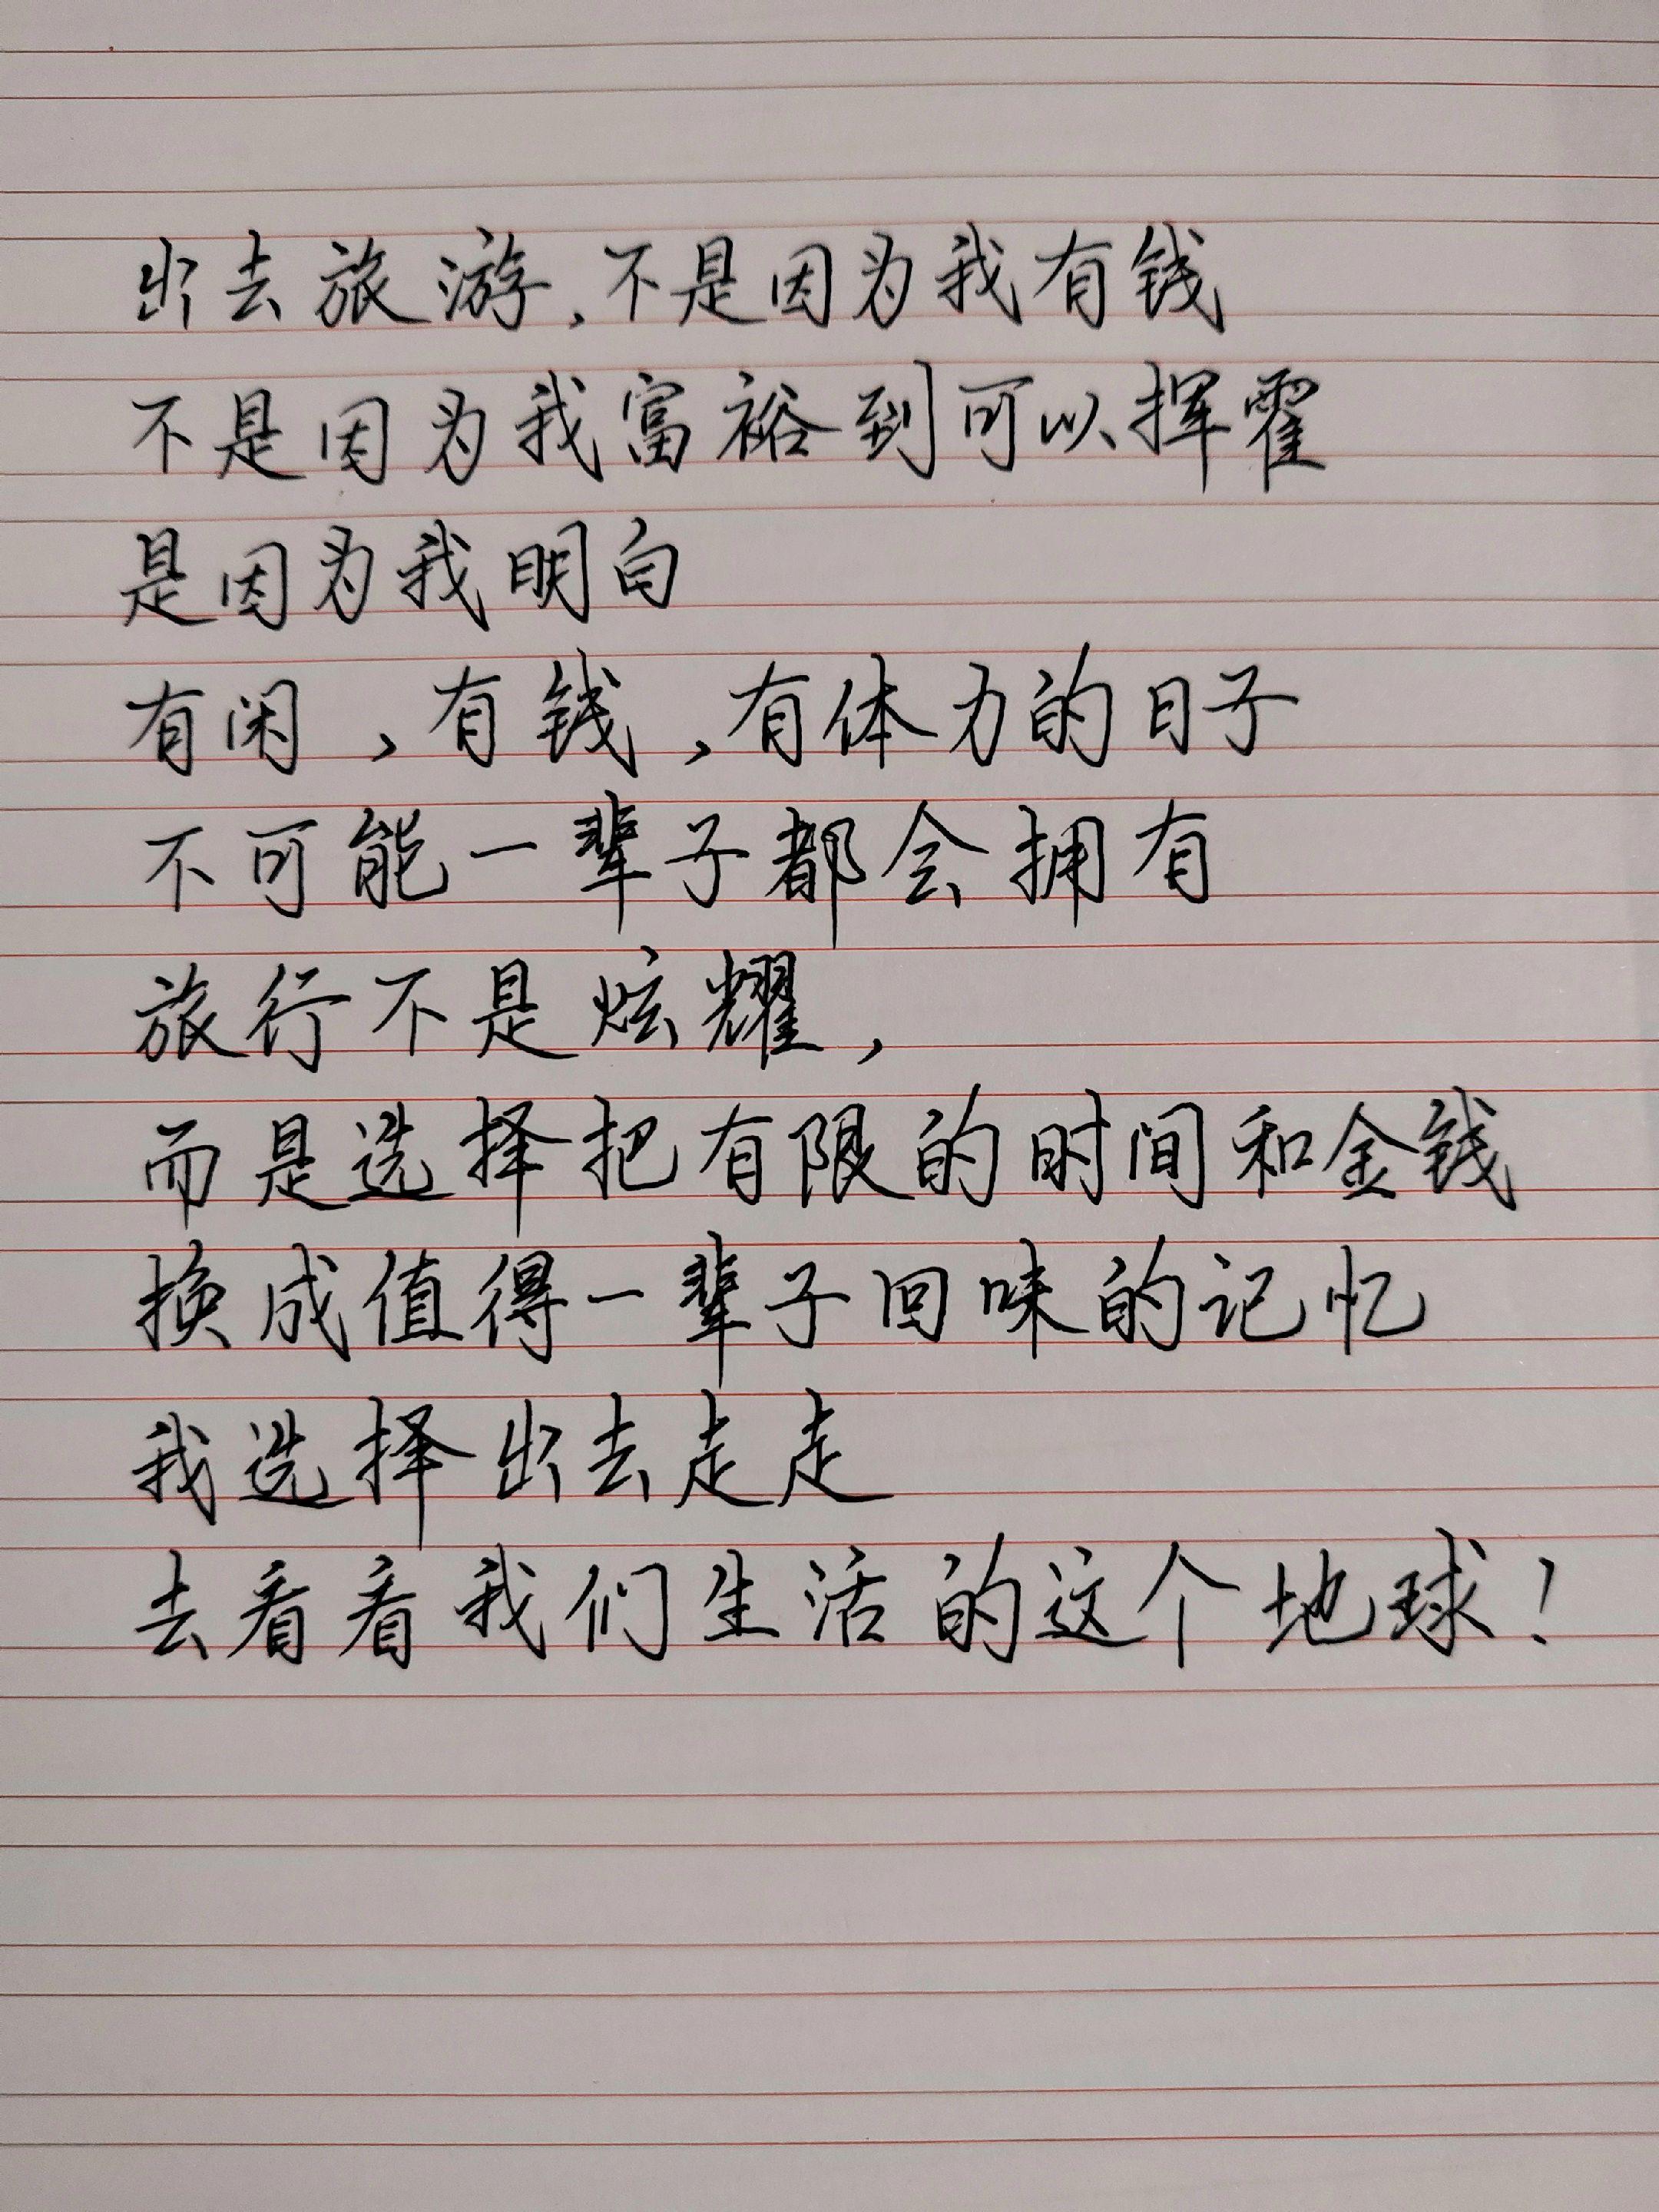 出去旅游,不是因为我有钱
不是因为我富裕到可以挥霍
是因为我明白
有闲,有钱,有体力的日子
不可能一辈子都会拥有
旅行不是炫耀,
而是选择把有限的时间和金钱
换成值得一辈子回味的记忆
我选择出去走走
去看看我们生活的这个地球!